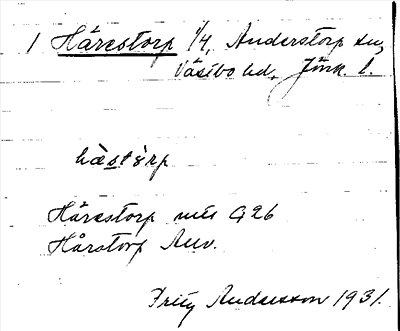 1 Hårestorp 1/4, Anderstorp sn,
Västbo hd, Jönk. l.
hàstórp
Hårestorp mtl G26
Hårstorp Auv.
Fritz Andersson 1931.